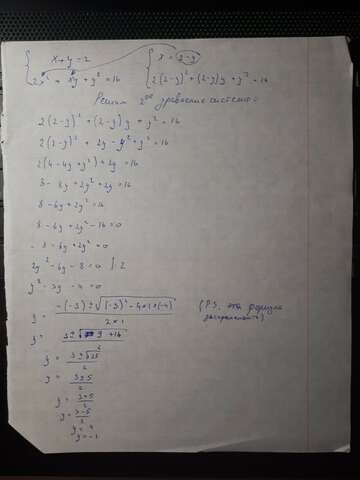 { x+y=2
2x² + xy + y² = 16
{ x = 2-y
2(2-y)² + (2-y)y + y² = 16
Решим 2ое уравнение системы:
2(2-y)² + (2-y)y + y² = 16
2(2-y)² + 2y - y² + y² = 16
2(4-4y+y²) + 2y = 16
8 - 8y + 2y² + 2y = 16
8 - 6y + 2y² = 16
8 - 6y + 2y² - 16 = 0
-8 - 6y + 2y² = 0
2y² - 6y - 8 = 0 | :2
y² - 3y - 4 = 0
y = -(-3) ± √(-3)² - 4×1×(-4) / 2×1
(P.S. эта формула дискриминанта)
y = 3 ± √9 + 16 / 2
y = 3 ± √25 / 2
y = 3 ± 5 / 2
y = 3+5 / 2
y = 3-5 / 2
y = 4
y = -1